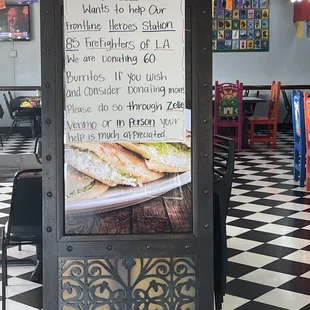 Wants to help Our
Frontline Heroes Station
85 FireFighters of L.A.
We are Donating 60
Burritos If you wish
and consider Donating more
Please do so through Zelle
Venmo or in person Your
help is much appreciated.